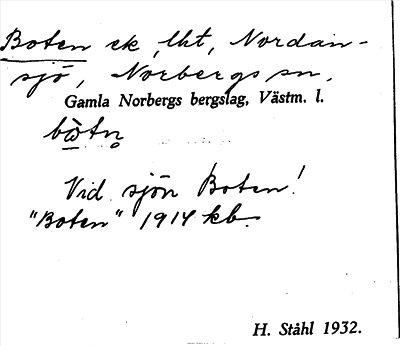 Boten ek, lht, Nordan-
sjö, Norbergs sn,
Gamla Norbergs bergslag, Västm. l.
bὼtn̥
Vid sjön Boten!
"Boten" 1914 kb.
H. Ståhl 1932.